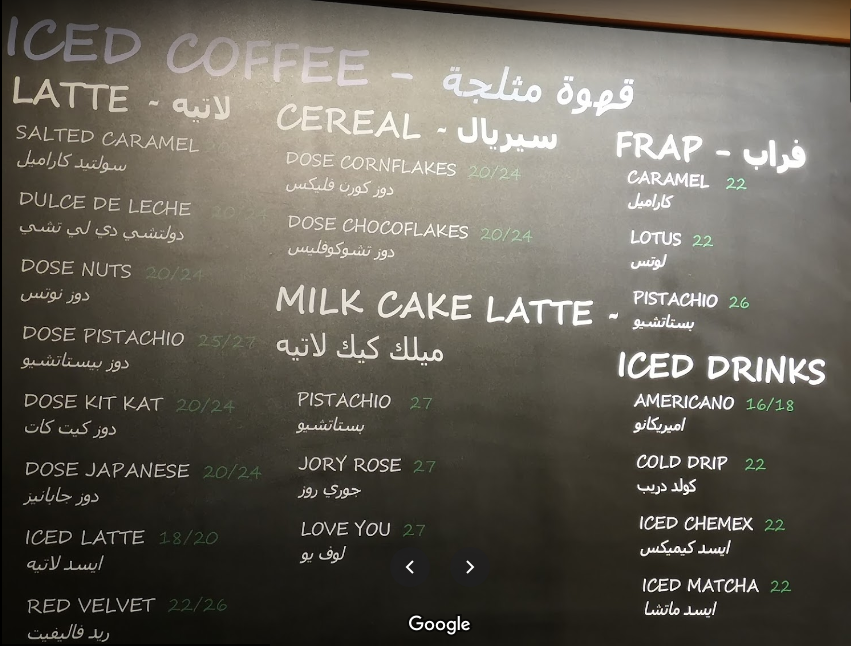 ICED COFFEE - قهوة مثلجة
LATTE - لاتيه
SALTED CARAMEL
سولتيد كاراميل
DULCE DE LECHE 20/24
دولتشي دي لي تشي
DOSE NUTS 20/24
دوز نوتس
DOSE PISTACHIO 25/27
دوز بيستاتشيو
DOSE KIT KAT 20/24
دوز كيت كات
DOSE JAPANESE 20/24
دوز جابانيز
ICED LATTE 18/20
ايسد لاتيه
RED VELVET 22/26
ريد فاليفيت
CEREAL - سيريال
DOSE CORNFLAKES 20/24
دوز كورن فليكس
DOSE CHOCOFLAKES 20/24
دوز تشوكوفليس
MILK CAKE LATTE -
ميلك كيك لاتيه
PISTACHIO 27
بستاتشيو
JORY ROSE 27
جوري روز
LOVE YOU 27
لوف يو
FRAP - فراب
CARAMEL 22
كاراميل
LOTUS 22
لوتس
PISTACHIO 26
بستاتشيو
ICED DRINKS
AMERICANO 16/18
اميريكانو
COLD DRIP 22
كولد دريب
ICED CHEMEX 22
ايسد كيميكس
ICED MATCHA 22
ايسد ماتشا
Google